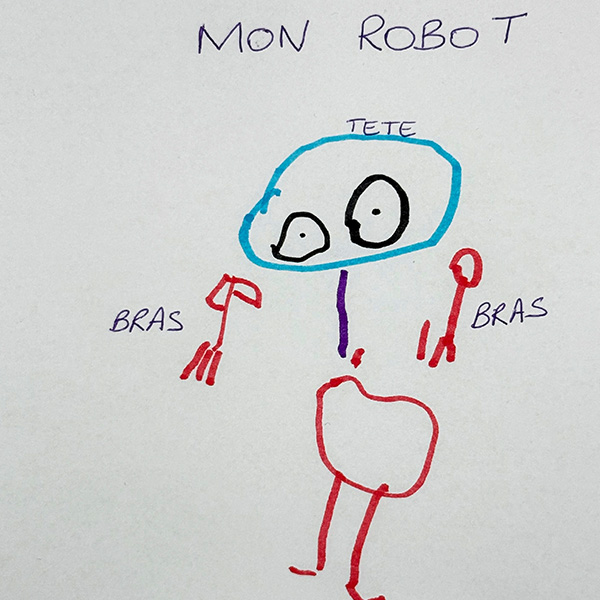 MON ROBOT
TETE
BRAS
BRAS